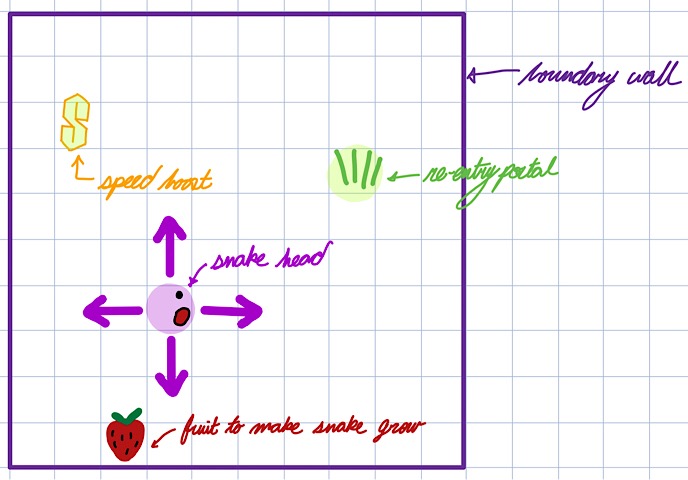 boundary wall
S
speed boost
re-entry portal
snake head
fruit to make snake grow